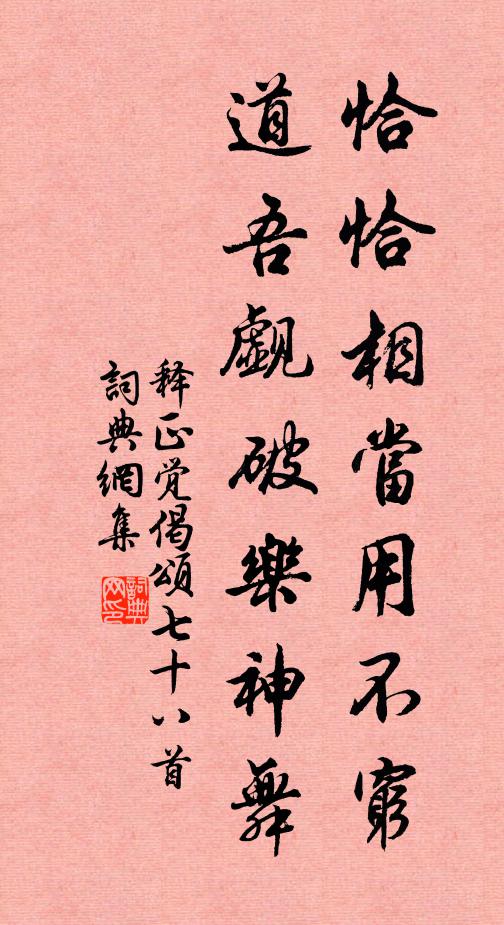 恰恰相當用不窮
道吾觑破樂神舞
释正觉偈頌七十八首
詞典網集
詞典网印